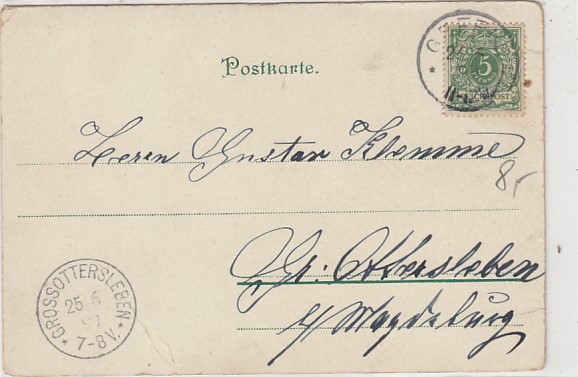 Postkarte.
5
Herrn Gustav Klemme
8,-
Gr. Ottersleben
b/ Magdeburg
* GROSSOTTERSLEBEN *
25 6
92
7-8 V.